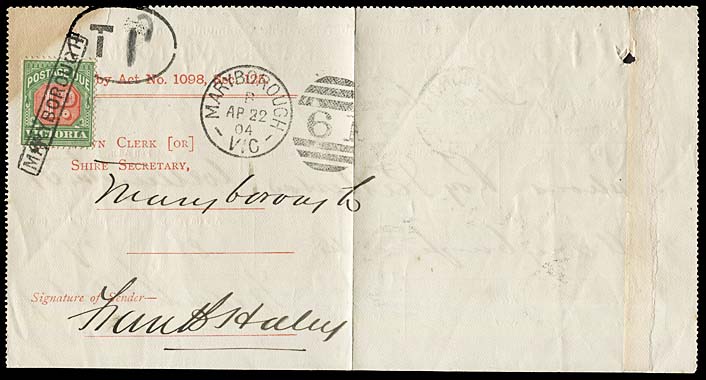 T
by Act No. 1098, Sec.
MARYBOROUGH
R
AP 22
04
VIC
6
POSTAGE DUE
VICTORIA
MARYBOROUGH
Clerk [or]
Shire Secretary,
Maryborough
Signature of Sender—
Haley